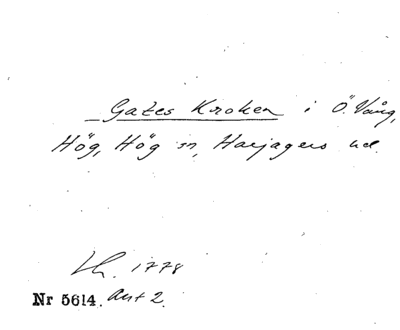 _ Gates Kroken i Ö. Vång,
Hög, Hög sn, Harjagers hd.
Lh. 1778
Nr 5614. Akt 2.